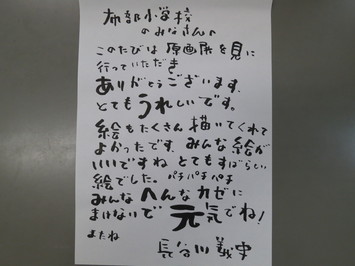 布部小学校
のみなさんへ
このたびは原画展を見に
行っていただき
ありがとうございます。
とてもうれしいです。
絵もたくさん描いてくれて
よかったです。みんな絵が
いいですね とてもすばらしい
絵でした。パチパチパチ
みんなへんなカゼに
まけないで元気でね!
またね
長谷川義史